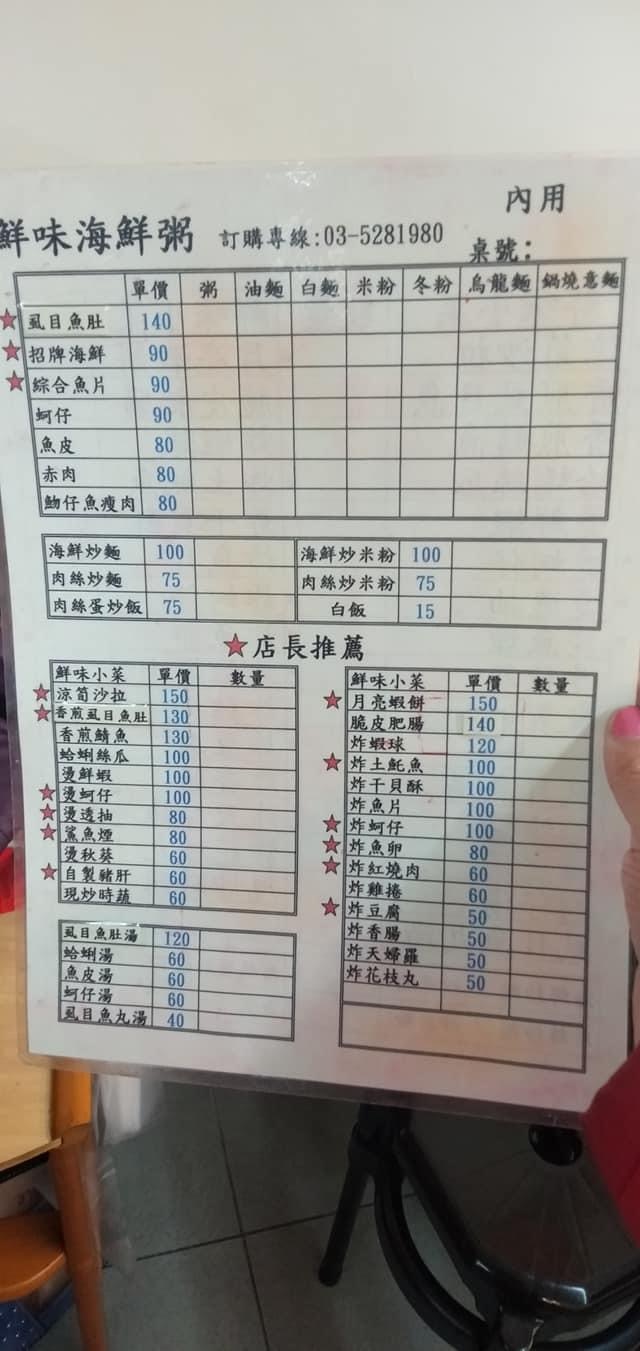 內用
鮮味海鮮粥 訂購專線:03-5281980 桌號:
單價 粥 油麵 白麵 米粉 冬粉 烏龍麵 鍋燒意麵
虱目魚肚 140
招牌海鮮 90
綜合魚片 90
蚵仔 90
魚皮 80
赤肉 80
魩仔魚瘦肉 80
海鮮炒麵 100 海鮮炒米粉 100
肉絲炒麵 75 肉絲炒米粉 75
肉絲蛋炒飯 75 白飯 15
店長推薦
鮮味小菜 單價 數量
涼筍沙拉 150
香煎虱目魚肚 130
香煎鯖魚 130
蛤蜊絲瓜 100
燙鮮蝦 100
燙蚵仔 100
燙透抽 80
鯊魚煙 80
燙秋葵 60
自製豬肝 60
現炒時蔬 60
虱目魚肚湯 120
蛤蜊湯 60
魚皮湯 60
蚵仔湯 60
虱目魚丸湯 40
鮮味小菜 單價 數量
月亮蝦餅 150
脆皮肥腸 140
炸蝦球 120
炸土魠魚 100
炸干貝酥 100
炸魚片 100
炸蚵仔 100
炸魚卵 80
炸紅燒肉 60
炸雞捲 60
炸豆腐 50
炸香腸 50
炸天婦羅 50
炸花枝丸 50